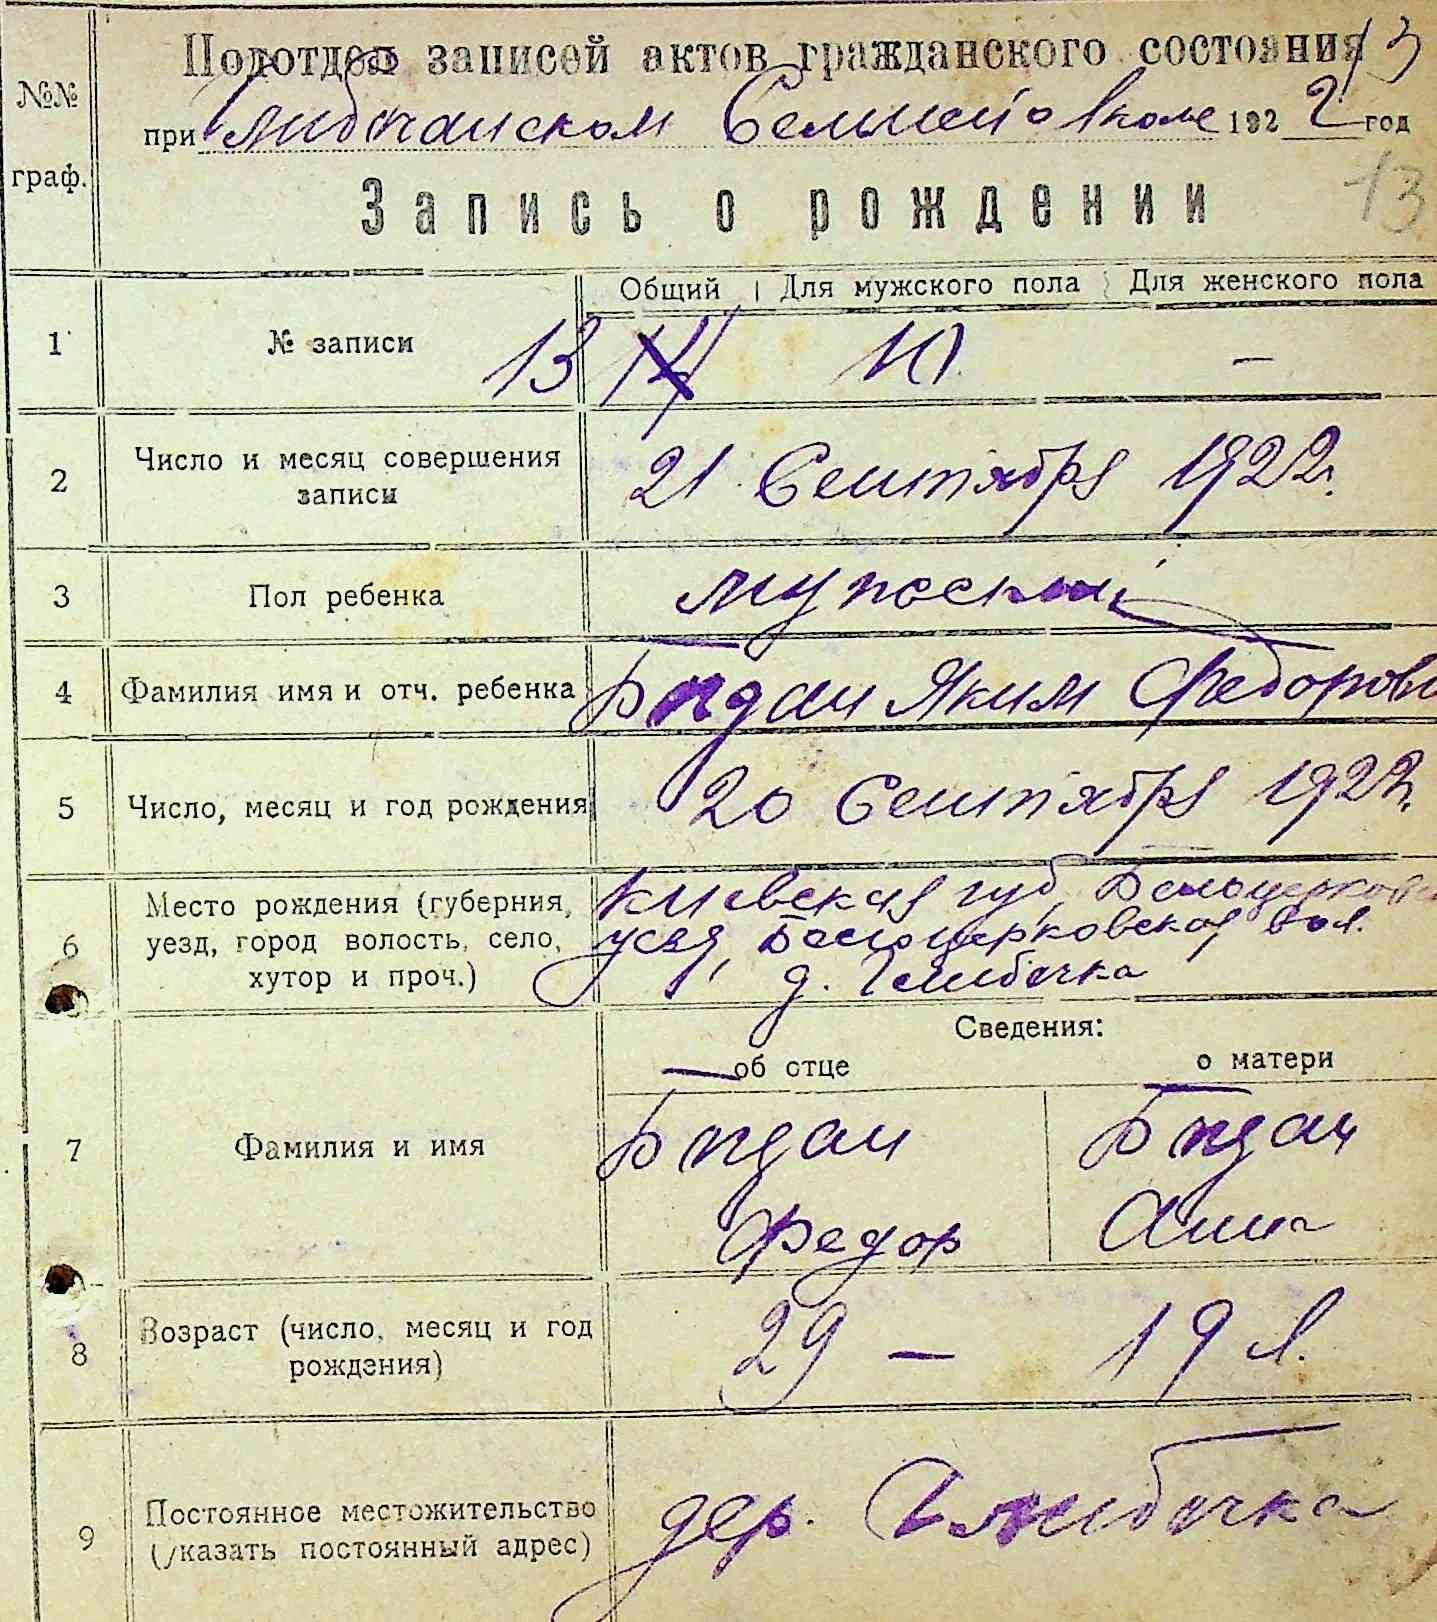 Подотдел записей актов гражданского состояния 13
№№
при Глибочанском Сельисполкоме 1922 год
13
граф.
Запись о рождении
Общий | Для мужского пола | Для женского пола
1 № записи 13 14 10 –
2 Число и месяц совершения записи 21 Сентября 1922г.
3 Пол ребенка мужеский
4 Фамилия имя и отч. ребенка Яким Федоров
5 Число, месяц и год рождения 20 Сентября 1922г.
6 Место рождения (губерния, уезд, город волость, село, хутор и проч.)
Киевская губ, Белоцерковск
уезд, Белоцерковская вол.
д. Глибочка
Сведения:
об отце о матери
7 Фамилия и имя
Федор Анна
8 Возраст (число, месяц и год рождения) 29 – 19 л.
9 Постоянное местожительство (указать постоянный адрес) дер. Глибочка